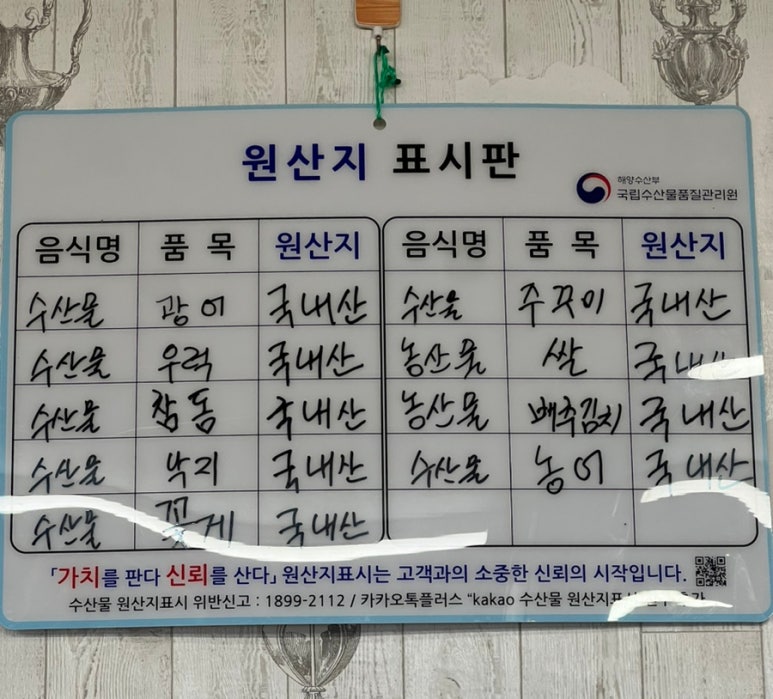 원산지 표시판
해양수산부
국립수산물품질관리원
음식명 품 목 원산지 음식명 품 목 원산지
수산물 광어 국내산 수산물 주꾸미 국내산
수산물 우럭 국내산 농산물 쌀 국내산
수산물 참돔 국내산 농산물 배추김치 국내산
수산물 낙지 국내산 수산물 농어 국내산
수산물 꽃게 국내산
「가치를 판다 신뢰를 산다」 원산지표시는 고객과의 소중한 신뢰의 시작입니다.
수산물 원산지표시 위반신고 : 1899-2112 / 카카오톡플러스 "kakao 수산물 원산지표시